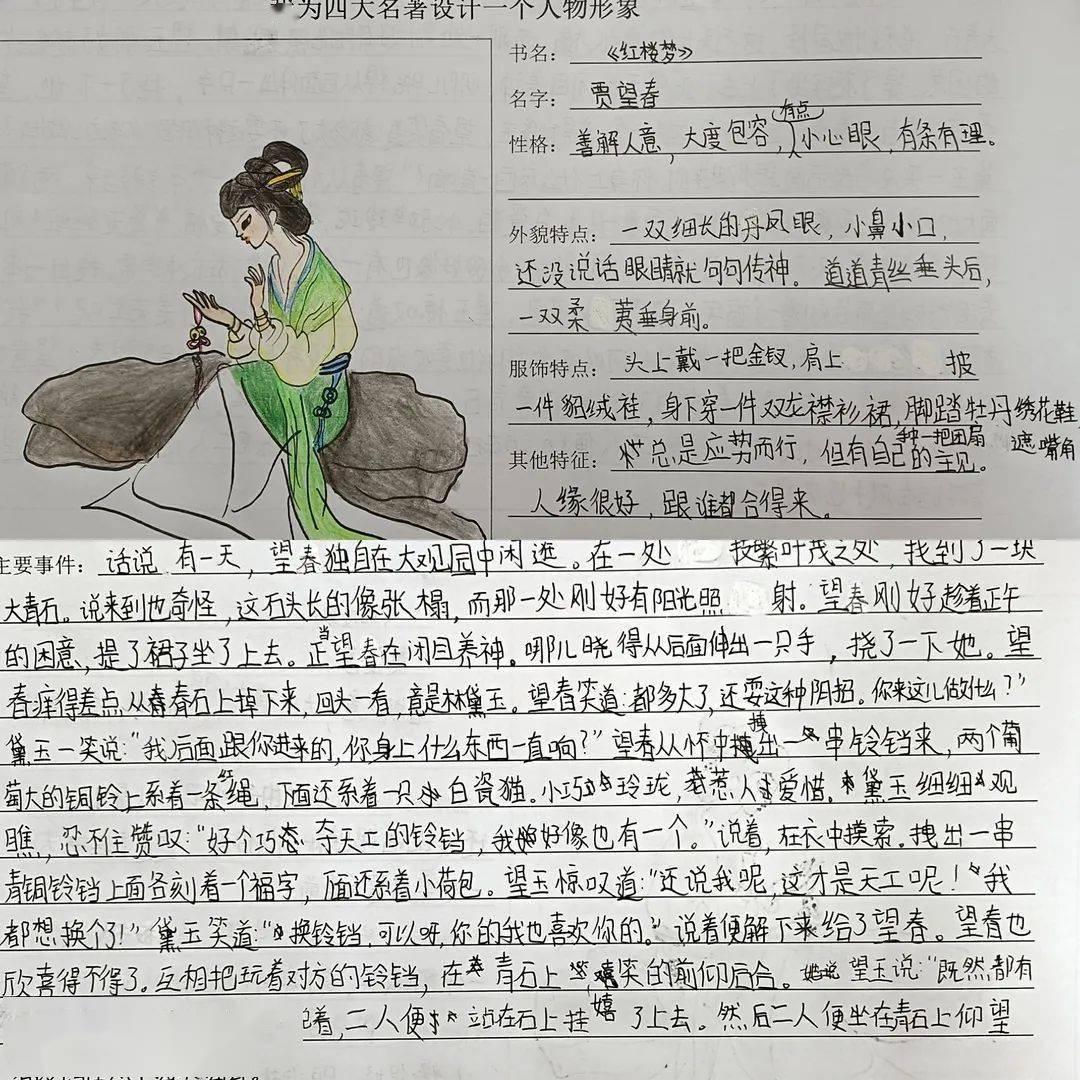 为四大名著设计一个人物形象
书名: 《红楼梦》
名字: 贾望春
性格: 善解人意,大度包容,有点小心眼,有条有理。
外貌特点: 一双细长的丹凤眼,小鼻小口,
还没说话眼睛就句句传神。道道青丝垂头后,
一双柔荑垂身前。
服饰特点: 头上戴一把金钗,肩上披
一件貂绒袿,身下穿一件双龙襟衫裙,脚踏牡丹绣花鞋
其他特征: 总是应势而行,但有自己的主见。种一把团扇遮嘴角
人缘很好,跟谁都合得来。
主要事件: 话说有一天,望春独自在大观园中闲逛。在一处枝繁叶茂之处,找到了一块
大青石。说来到也奇怪,这石头长的像张榻,而那一处刚好有阳光照射。望春刚好趁着正午
的困意,提了裙子坐了上去。正当望春在闭目养神。哪儿晓得从后面伸出一只手,挠了一下她。望
春痒得差点从青石上掉下来,回头一看,竟是林黛玉。望春笑道:都多大了,还耍这种阴招。你来这儿做什么?”
黛玉一笑说:“我后面跟你进来的,你身上什么东西一直响?”望春从怀中拽出一串铃铛来,两个葡
萄大的铜铃上系着一条红绳,下面还系着一只白瓷猫。小巧玲珑,惹人爱惜。黛玉细细观
瞧,忍不住赞叹:“好个巧夺天工的铃铛,我好像也有一个。”说着,在衣中摸索。拽出一串
青铜铃铛上面各刻着一个福字,下面还系着小荷包。望玉惊叹道:“还说我呢,这才是天工呢!我
都想换个了!”黛玉笑道:“换铃铛,可以呀,你的我也喜欢你的。”说着便解下来给了望春。望春也
欣喜得不得了。互相把玩着对方的铃铛,在青石上嬉笑的前仰后合。望玉说:“既然都有
着,二人便站在石上挂了上去。然后二人便坐在青石上仰望